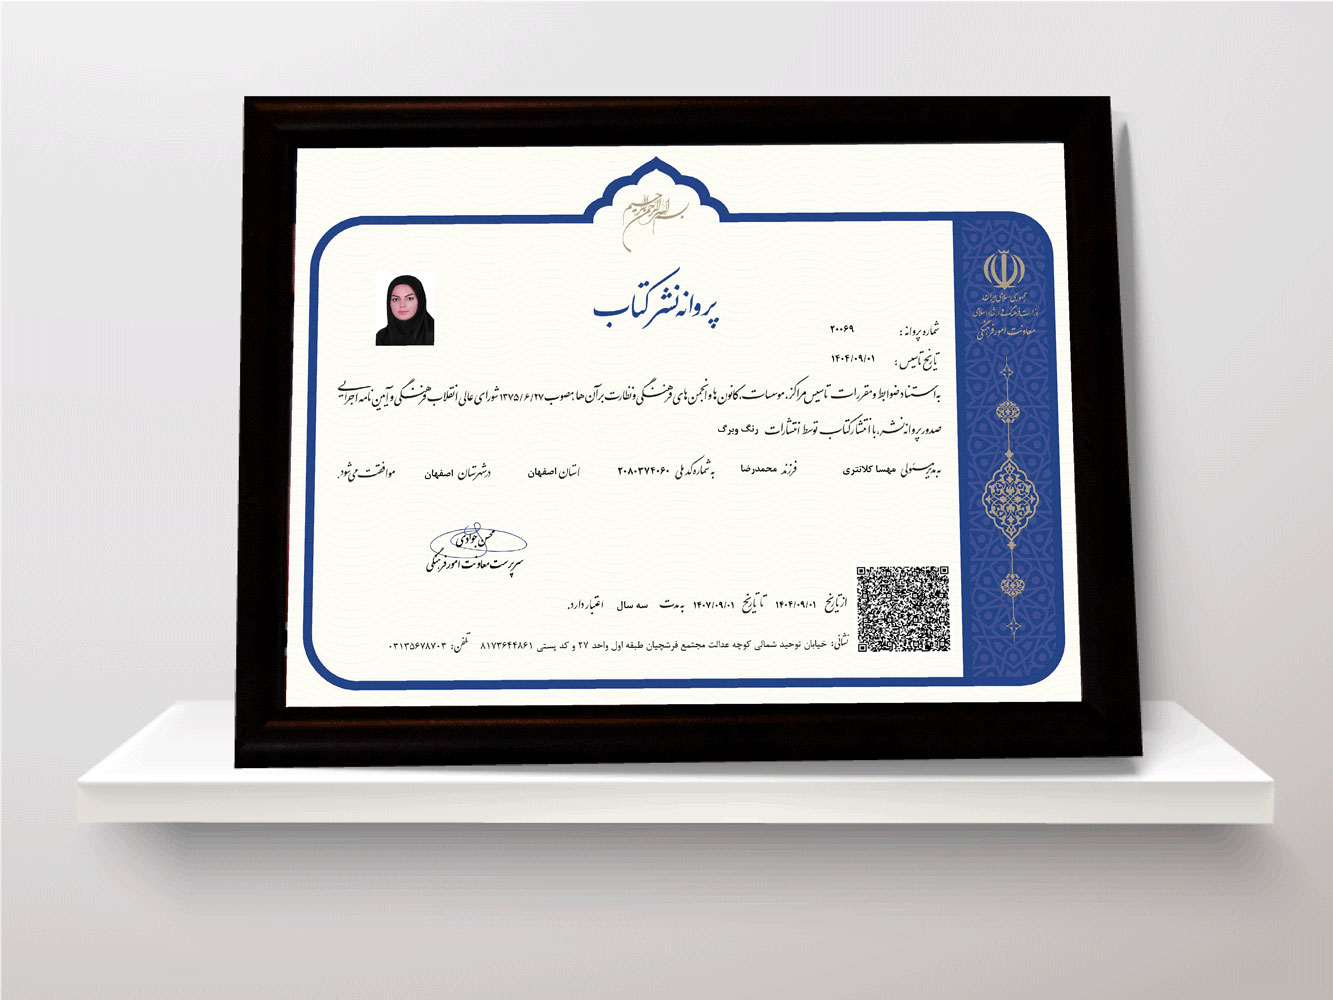 بسم الله الرحمن الرحیم
جمهوری اسلامی ایران
وزارت فرهنگ و ارشاد اسلامی
معاونت امور فرهنگی
پروانه نشر کتاب
شماره پروانه: ۲۰۰۶۹
تاریخ تاسیس: ۱۴۰۴/۰۹/۰۱
به استناد ضوابط و مقررات تاسیس مراکز، موسسات، کانون ها و انجمن های فرهنگی و نظارت بر آن ها؛ مصوب ۱۳۷۵/۶/۲۷ شورای عالی انقلاب فرهنگی و آیین نامه اجرایی
صدور پروانه نشر، با انتشار کتاب توسط انتشارات رنگ وبرگ
به مدیر مسئولی مهسا کلانتری فرزند محمدرضا به شماره کد ملی ۲۰۸۰۳۷۴۰۶۰ استان اصفهان در شهرستان اصفهان موافقت می شود.
محسن جوادی
سرپرست معاونت امور فرهنگی
از تاریخ ۱۴۰۴/۰۹/۰۱ تا تاریخ ۱۴۰۷/۰۹/۰۱ به مدت سه سال اعتبار دارد.
نشانی: خیابان توحید شمالی کوچه عدالت مجتمع فرشچیان طبقه اول واحد ۲۷ و کد پستی ۸۱۷۳۶۴۴۸۶۱ تلفن: ۰۳۱۳۵۶۷۸۷۰۳